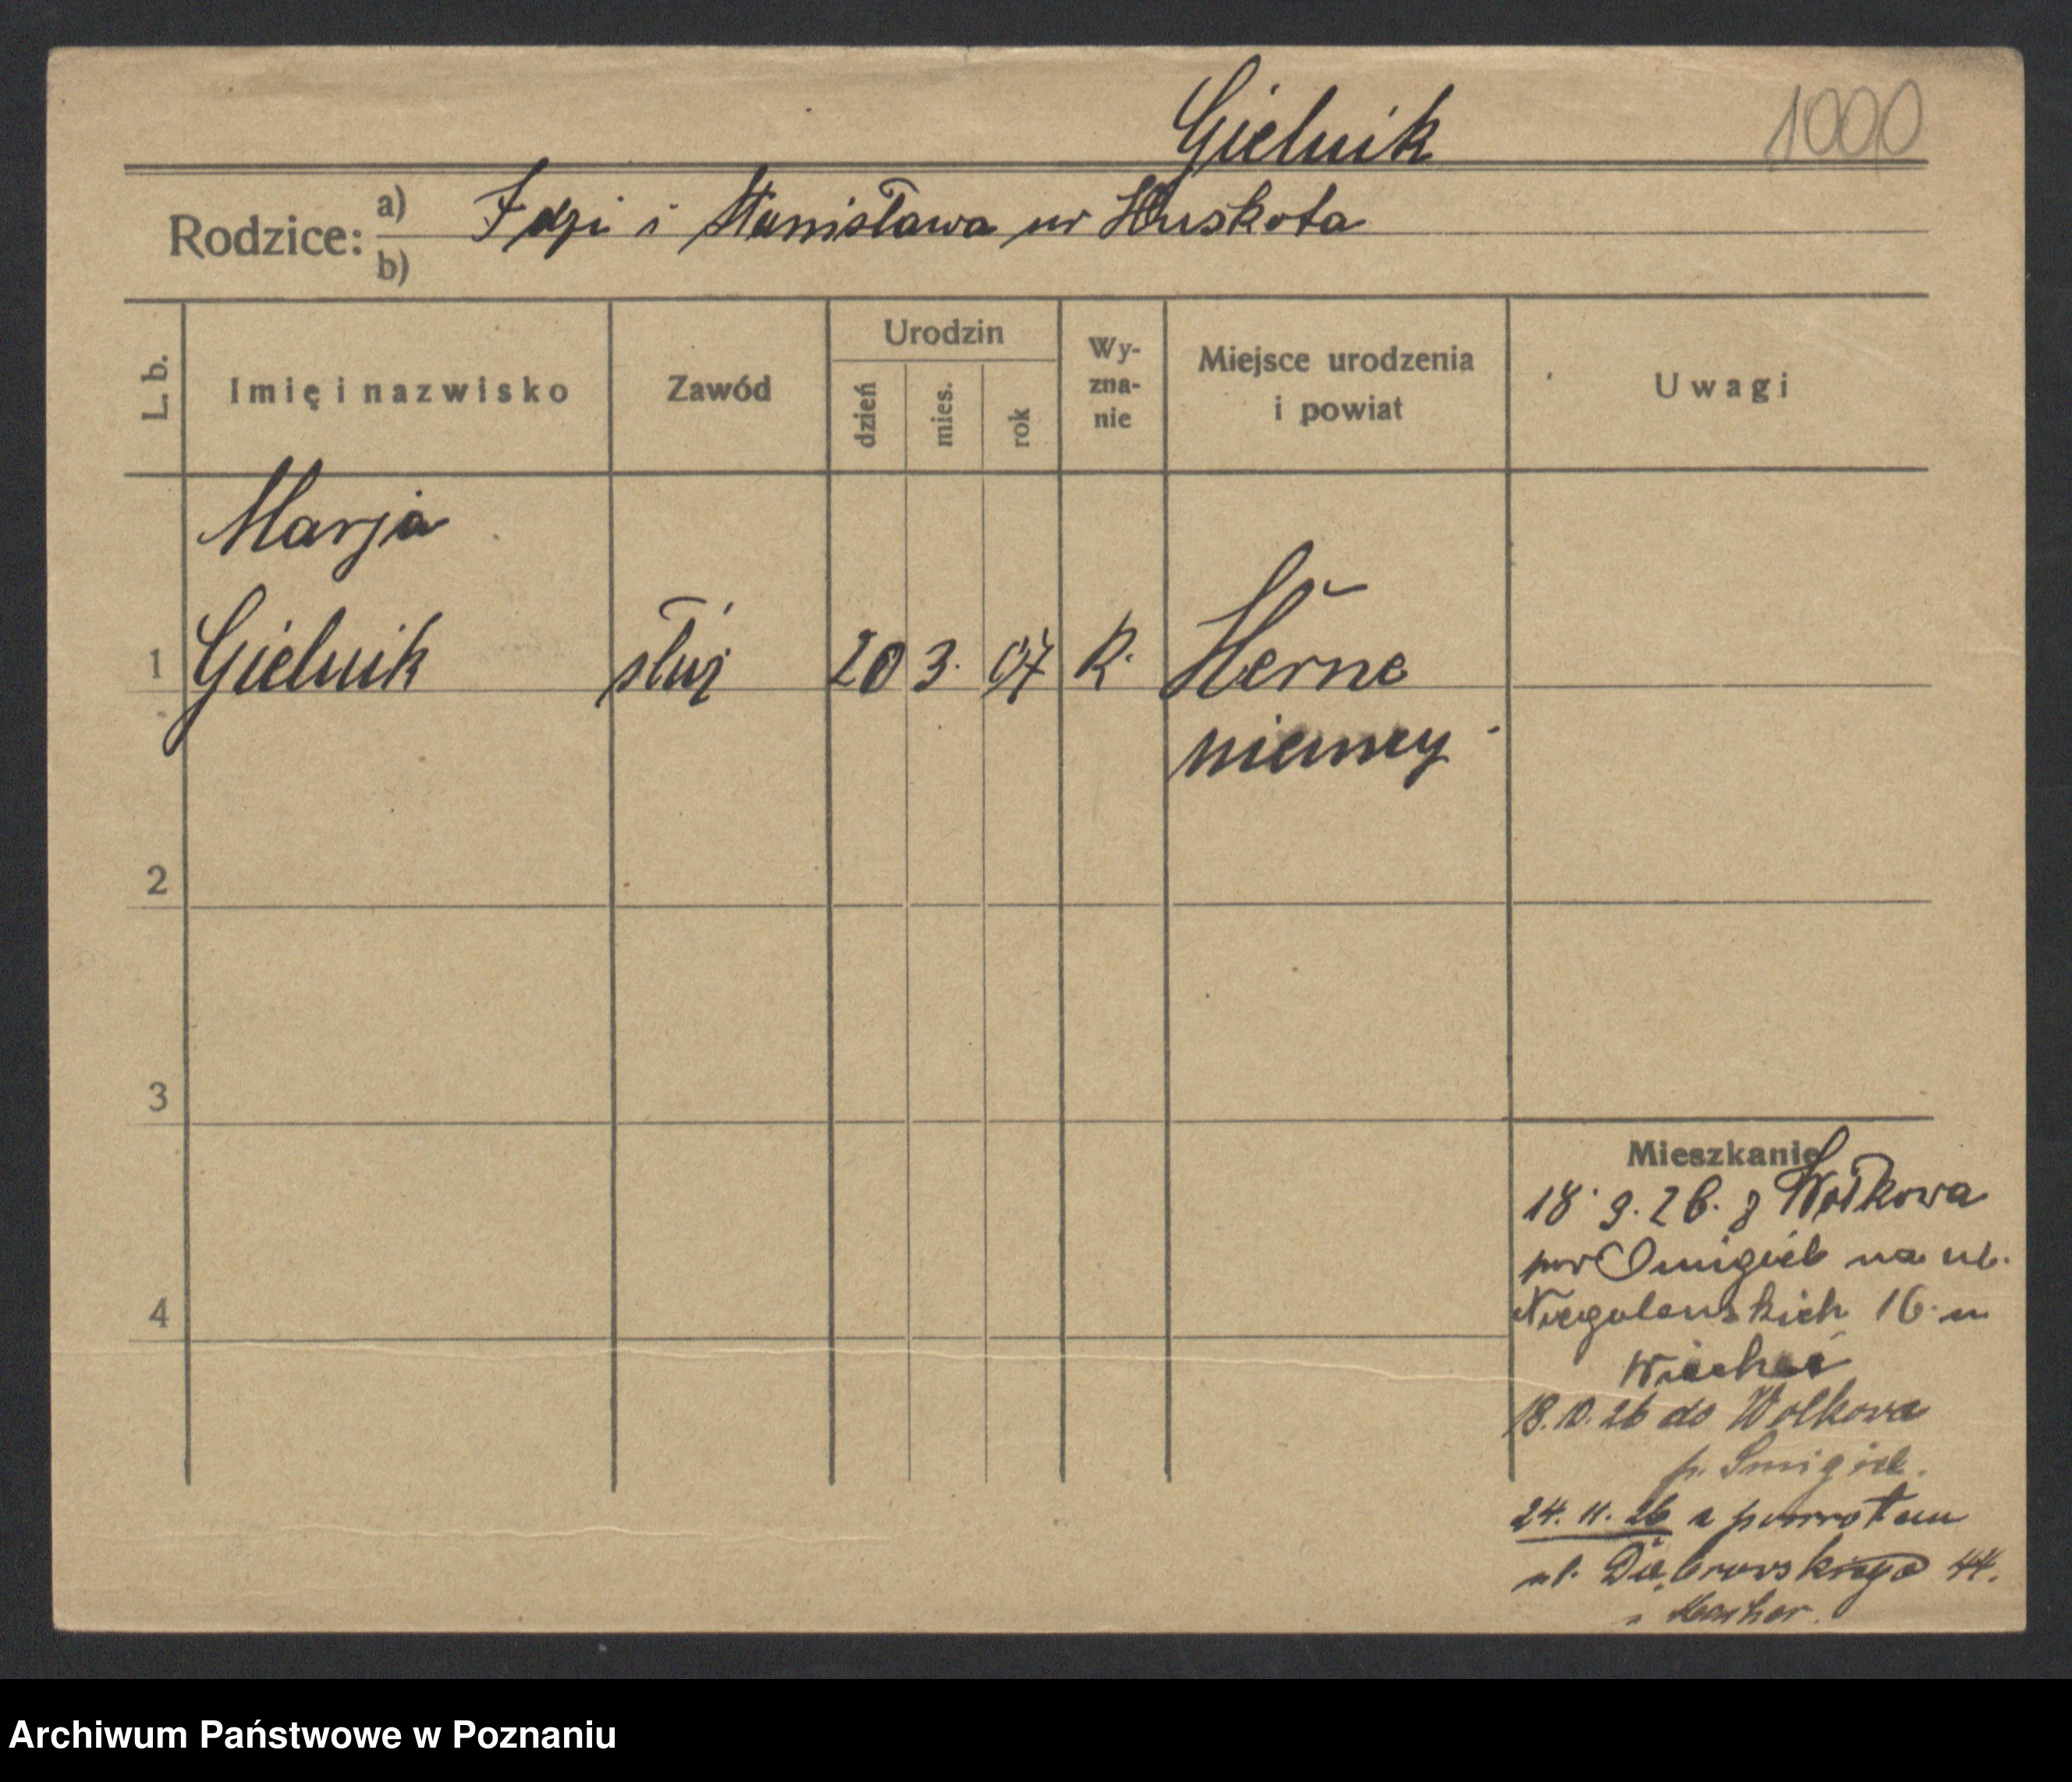 Gielnik
1000
Rodzice: a) Idzi i Stanisława ur Huskota
b)
L. b. Imię i nazwisko Zawód Urodzin dzień mies. rok Wy-zna-nie Miejsce urodzenia i powiat Uwagi
Marja
1 Gielnik służ 20 3. 07 R. Herne
niemcy
2
3
Mieszkanie
18. 9. 26. z Wołkowa
pow Śmigiel na ul.
4 16. u
18. 10. 26 do Wolkowa
p. Smigiel.
24. 11. 26 z powrotem
ul. Dąbrowskiego 44.
Archiwum Państwowe w Poznaniu